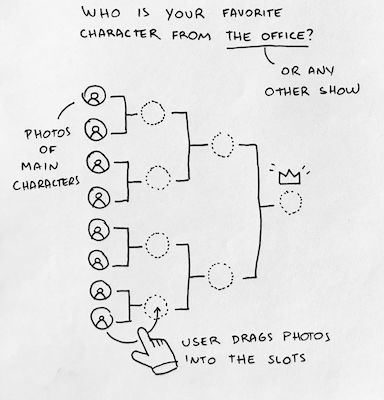 WHO IS YOUR FAVORITE
CHARACTER FROM THE OFFICE?
OR ANY
OTHER SHOW
PHOTOS
OF
MAIN
CHARACTERS
USER DRAGS PHOTOS
INTO THE SLOTS